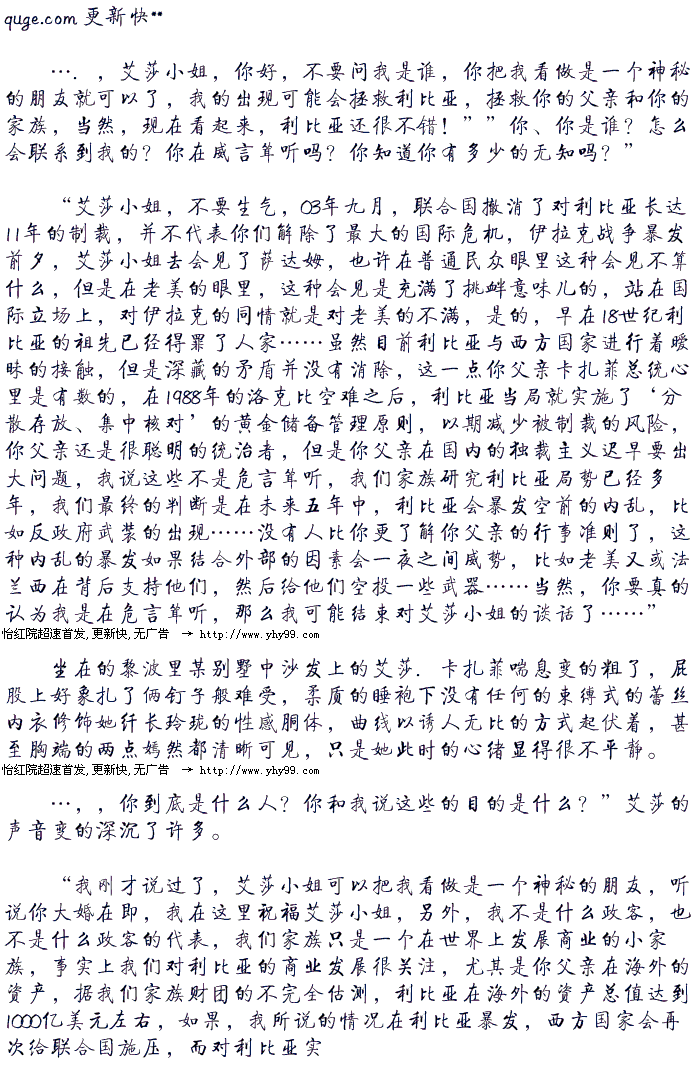 quge.com 更新快**
…．，艾莎小姐，你好，不要问我是谁，你把我看做是一个神秘
的朋友就可以了，我的出现可能会拯救利比亚，拯救你的父亲和你的
家族，当然，现在看起来，利比亚还很不错！””你、你是谁？怎么
会联系到我的？你在威言耸听吗？你知道你有多少的无知吗？”
“艾莎小姐，不要生气，03年九月，联合国撤消了对利比亚长达
11年的制裁，并不代表你们解除了最大的国际危机，伊拉克战争暴发
前夕，艾莎小姐去会见了萨达姆，也许在普通民众眼里这种会见不算
什么，但是在老美的眼里，这种会见是充满了挑衅意味儿的，站在国
际立场上，对伊拉克的同情就是对老美的不满，是的，早在18世纪利
比亚的祖先已经得罪了人家……虽然目前利比亚与西方国家进行着暧
昧的接触，但是深藏的矛盾并没有消除，这一点你父亲卡扎菲总统心
里是有数的，在1988年的洛克比空难之后，利比亚当局就实施了‘分
散存放、集中核对’的黄金储备管理原则，以期减少被制裁的风险，
你父亲还是很聪明的统治者，但是你父亲在国内的独裁主义迟早要出
大问题，我说这些不是危言耸听，我们家族研究利比亚局势已经多
年，我们最终的判断是在未来五年中，利比亚会暴发空前的内乱，比
如反政府武装的出现……没有人比你更了解你父亲的行事准则了，这
种内乱的暴发如果结合外部的因素会一夜之间威势，比如老美又或法
兰西在背后支持他们，然后给他们空投一些武器……当然，你要真的
认为我是在危言耸听，那么我可能结束对艾莎小姐的谈话了……”
怡红院超速首发,更新快,无广告 → http://www.yhy99.com
坐在的黎波里某别墅中沙发上的艾莎．卡扎菲喘息变的粗了，屁
股上好象扎了俩钉子般难受，柔质的睡袍下没有任何的束缚式的蕾丝
内衣修饰她纤长玲珑的性感胴体，曲线以诱人无比的方式起伏着，甚
至胸端的两点嫣然都清晰可见，只是她此时的心绪显得很不平静。
怡红院超速首发,更新快,无广告 → http://www.yhy99.com
…，，你到底是什么人？你和我说这些的目的是什么？”艾莎的
声音变的深沉了许多。
“我刚才说过了，艾莎小姐可以把我看做是一个神秘的朋友，听
说你大婚在即，我在这里祝福艾莎小姐，另外，我不是什么政客，也
不是什么政客的代表，我们家族只是一个在世界上发展商业的小家
族，事实上我们对利比亚的商业发展很关注，尤其是你父亲在海外的
资产，据我们家族财团的不完全估测，利比亚在海外的资产总值达到
1000亿美元左右，如果，我所说的情况在利比亚暴发，西方国家会再
次给联合国施压，而对利比亚实